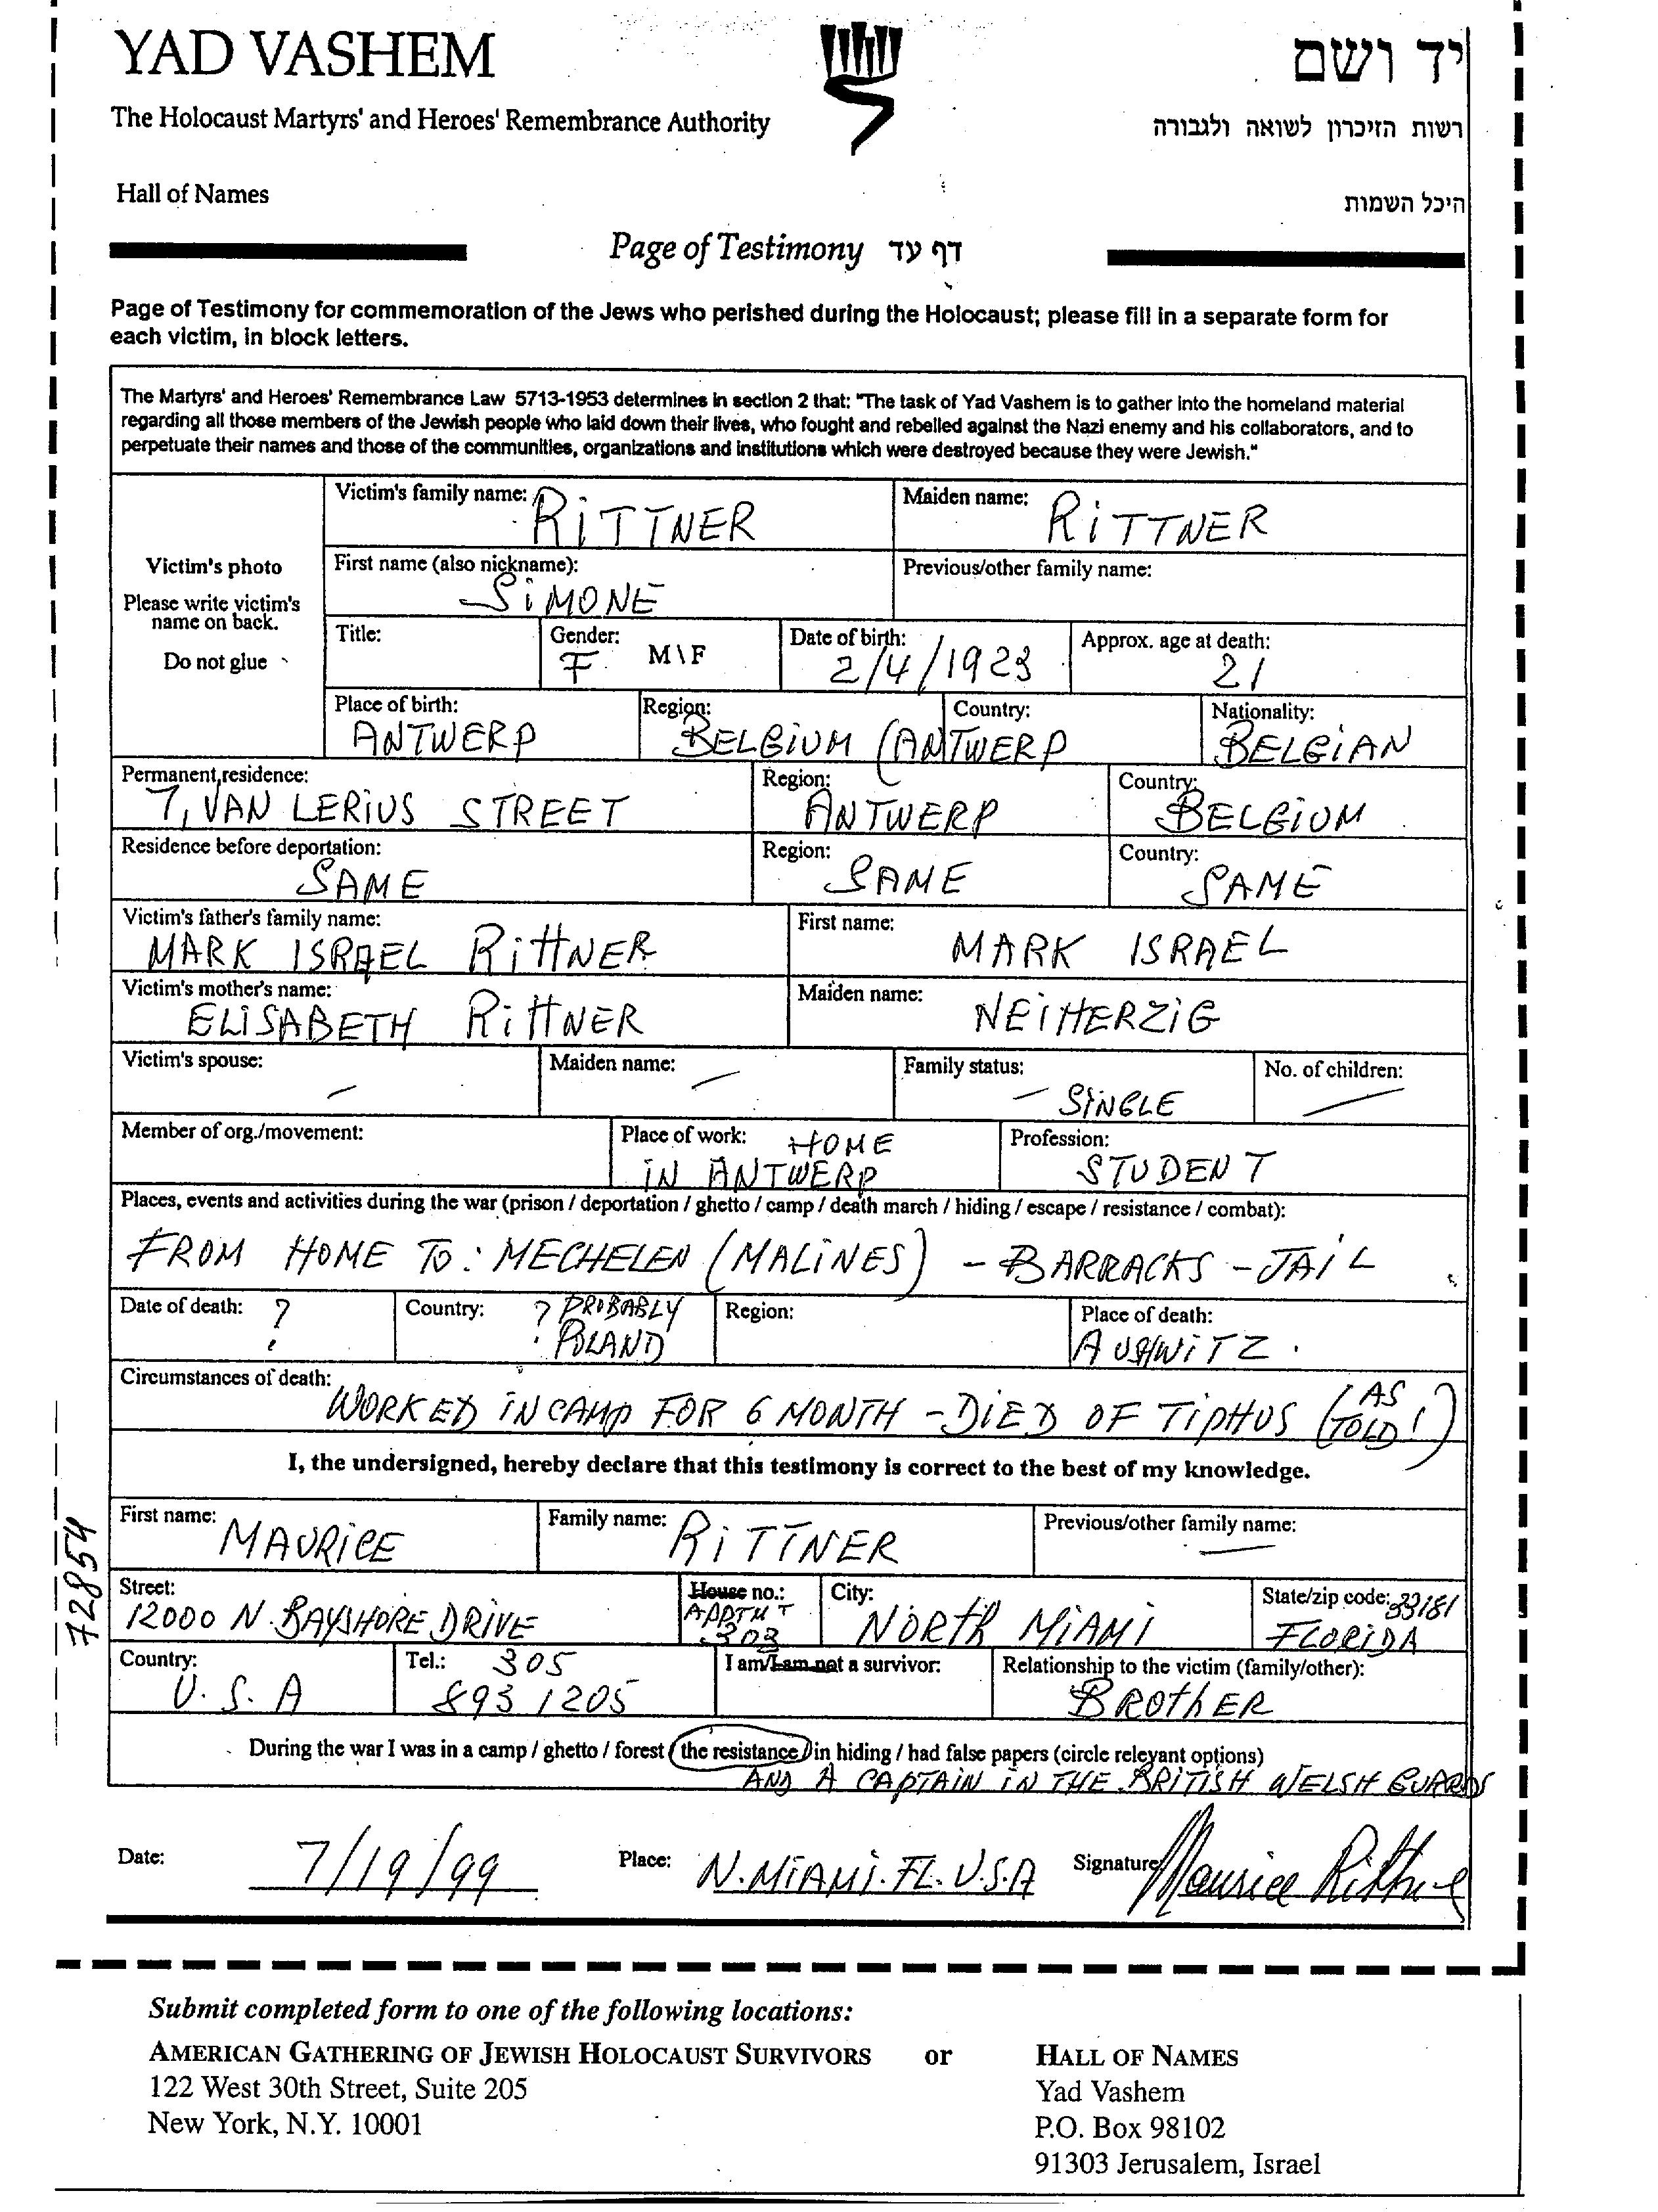 YAD VASHEM
יד ושם
The Holocaust Martyrs' and Heroes' Remembrance Authority
רשות הזיכרון לשואה ולגבורה
Hall of Names
היכל השמות
Page of Testimony דף עד
Page of Testimony for commemoration of the Jews who perished during the Holocaust; please fill in a separate form for
each victim, in block letters.
The Martyrs' and Heroes' Remembrance Law 5713-1953 determines in section 2 that: "The task of Yad Vashem is to gather into the homeland material
regarding all those members of the Jewish people who laid down their lives, who fought and rebelled against the Nazi enemy and his collaborators, and to
perpetuate their names and those of the communities, organizations and institutions which were destroyed because they were Jewish."
Victim's photo
Please write victim's
name on back.
Do not glue
Victim's family name: RITTNER
Maiden name: RITTNER
First name (also nickname): SIMONE
Previous/other family name:
Title:
Gender: F M\F
Date of birth: 2/4/1923
Approx. age at death: 21
Place of birth: ANTWERP
Region: Country: BELGIUM (ANTWERP
Nationality: BELGIAN
Permanent residence: 7, VAN LERIUS STREET
Region: ANTWERP
Country: BELGIUM
Residence before deportation: SAME
Region: SAME
Country: SAME
Victim's father's family name: MARK ISRAEL RITTNER
First name: MARK ISRAEL
Victim's mother's name: ELISABETH RITTNER
Maiden name: NEIHERZIG
Victim's spouse: –
Maiden name: –
Family status: – SINGLE
No. of children: –
Member of org./movement:
Place of work: HOME
IN ANTWERP
Profession: STUDENT
Places, events and activities during the war (prison / deportation / ghetto / camp / death march / hiding / escape / resistance / combat):
FROM HOME TO: MECHELEN (MALINES) - BARRACKS - JAIL
Date of death: ?
Country: ? PROBABLY
POLAND
Region:
Place of death: AUSHWITZ.
Circumstances of death: WORKED IN CAMP FOR 6 MONTH - DIED OF TIPHUS (AS TOLD!)
I, the undersigned, hereby declare that this testimony is correct to the best of my knowledge.
First name: MAURICE
Family name: RITTNER
Previous/other family name: –
Street: 12000 N. BAYSHORE DRIVE
House no.: APPTMT
303
City: NORTH MIAMI
State/zip code: 33181
FLORIDA
Country: U.S.A
Tel.: 305
893 1205
I am/I am not a survivor:
Relationship to the victim (family/other): BROTHER
During the war I was in a camp / ghetto / forest / the resistance / in hiding / had false papers (circle relevant options)
AND A CAPTAIN IN THE BRITISH WELSH GUARDS
Date: 7/19/99
Place: N.MIAMI.FL.U.S.A
Signature Maurice Rittner
72854
Submit completed form to one of the following locations:
AMERICAN GATHERING OF JEWISH HOLOCAUST SURVIVORS or HALL OF NAMES
122 West 30th Street, Suite 205
New York, N.Y. 10001
Yad Vashem
P.O. Box 98102
91303 Jerusalem, Israel